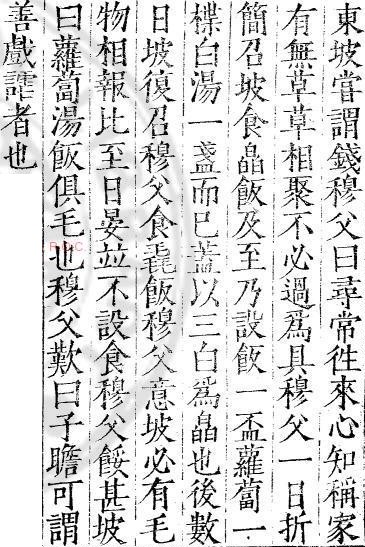 東坡嘗謂錢穆父曰尋常徃來心知稱家
有無草草相聚不必過爲具穆父一日折
簡召坡食皛飯及至乃設飯一盃蘿蔔一
楪白湯一盞而已蓋以三白爲皛也後數
日坡復召穆父食毳飯穆父意坡必有毛
物相報比至日晏並不設食穆父餒甚坡
曰蘿蔔湯飯俱毛也穆父歎曰子瞻可謂
善戲謔者也